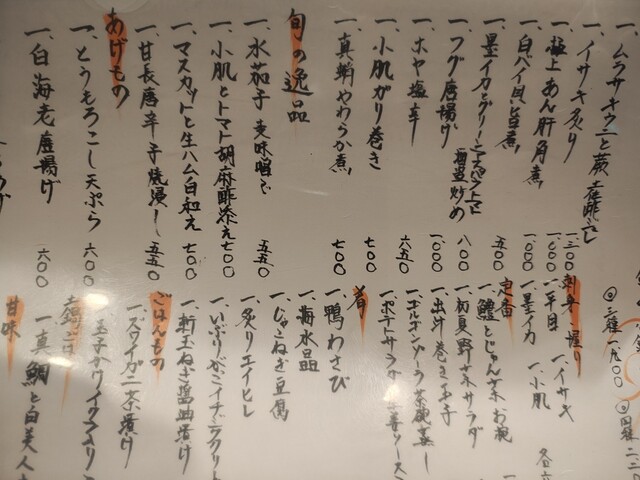 一、ムラサキウニと蕨 土佐酢ジュレ 一三〇〇
一、イサキ炙り 一〇〇〇
一、極上あん肝角煮 一〇〇〇
一、白バイ貝旨煮 五〇〇
一、墨イカとグリーンアスパラトマト 塩麹炒め 一〇〇〇
一、フグ唐揚げ 八〇〇
一、ホヤ塩辛 六五〇
一、小肌ガリ巻き 七〇〇
一、真鯛やわらか煮 七〇〇
旬の逸品
一、水茄子 麦味噌で 五五〇
一、小肌とトマト胡麻酢添え 七〇〇
一、マスカットと生ハム白和え 七〇〇
一、甘長唐辛子焼浸し 五五〇
あげもの
一、とうもろこし天ぷら 六〇〇
一、白海老唐揚げ 六〇〇
◎三種 一九〇〇
刺身・握り
一、平目 一、イサキ
一、墨イカ 一、小肌
定番
一、鱧とじゅん菜お椀
一、初夏野菜サラダ
一、出汁巻き玉子
一、ゴルゴンゾーラ茶碗蒸し
一、ポテトサラダ
肴
一、鴨わさび
一、海水晶
一、じゃこねぎ豆腐
一、炙りエイヒレ
一、いぶりがっこイチヂククリーム
一、新玉ねぎ醤油漬け
ごはんもの
一、ズワイガニ茶漬け
土鍋ごはん
一、真鯛と白美人
甘味